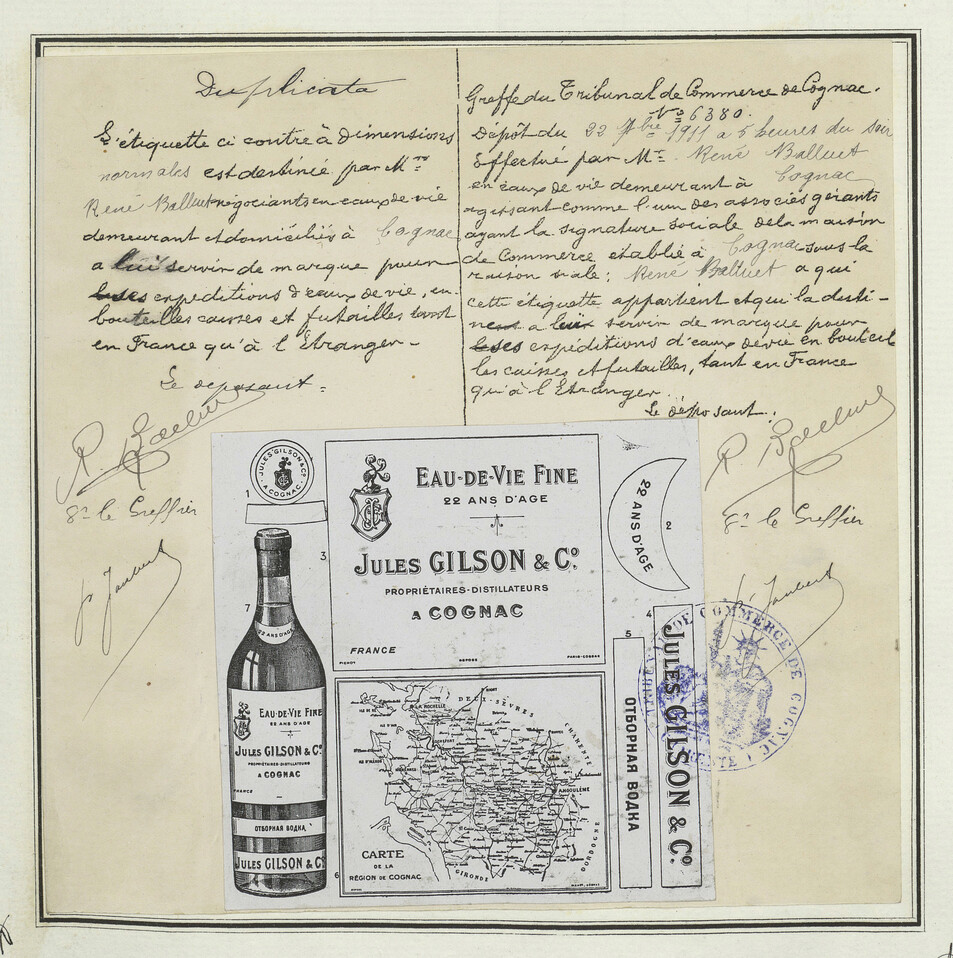 Duplicata
L'étiquette ci contre à dimensions
normales est destinée par Mr
René Balluet négociants en eaux de vie
demeurant et domiciliés à Cognac
a lui servir de marque pour
ses expéditions d'eaux de vie, en
bouteilles caisses et futailles tant
en France qu'à l'Etranger.
Le déposant.
R Balluet
Pr le Greffier
Greffe du Tribunal de Commerce de Cognac.
No 6380.
Dépôt du 22 7bre 1911 a 5 heures du soir
Effectué par Mr. René Balluet
en eaux de vie demeurant à Cognac
agissant comme l'un des associés gérants
ayant la signature sociale de la maison
de Commerce etablie à Cognac sous la
raison sociale: René Balluet a qui
cette étiquette appartient et qui la desti-
ne a lui servir de marque pour
ses expéditions d'eaux de vie en bouteil
les caisses et futailles, tant en France
qu'à l'Etranger.
Le déposant.
R Balluet
Pr le Greffier
JULES GILSON & Co
A COGNAC
1
3
7
EAU-DE-VIE FINE
22 ANS D'AGE
JULES GILSON & Co.
PROPRIÉTAIRES-DISTILLATEURS
A COGNAC
FRANCE
PICHOT
DEPOSE
PARIS-COGNAC
22 ANS D'AGE
2
4
5
JULES GILSON & Co.
ОТБОРНАЯ ВОДКА
TRIBUNAL DE COMMERCE DE COGNAC
22 ANS D'AGE
EAU-DE-VIE FINE
22 ANS D'AGE
JULES GILSON & Co
PROPRIÉTAIRES-DISTILLATEURS
A COGNAC
FRANCE
ОТБОРНАЯ ВОДКА
JULES GILSON & Co
6
DEUX-SÈVRES
NIORT
LA ROCHELLE
CHARENTE
ANGOULÊME
DORDOGNE
GIRONDE
CARTE
DE LA
RÉGION DE COGNAC